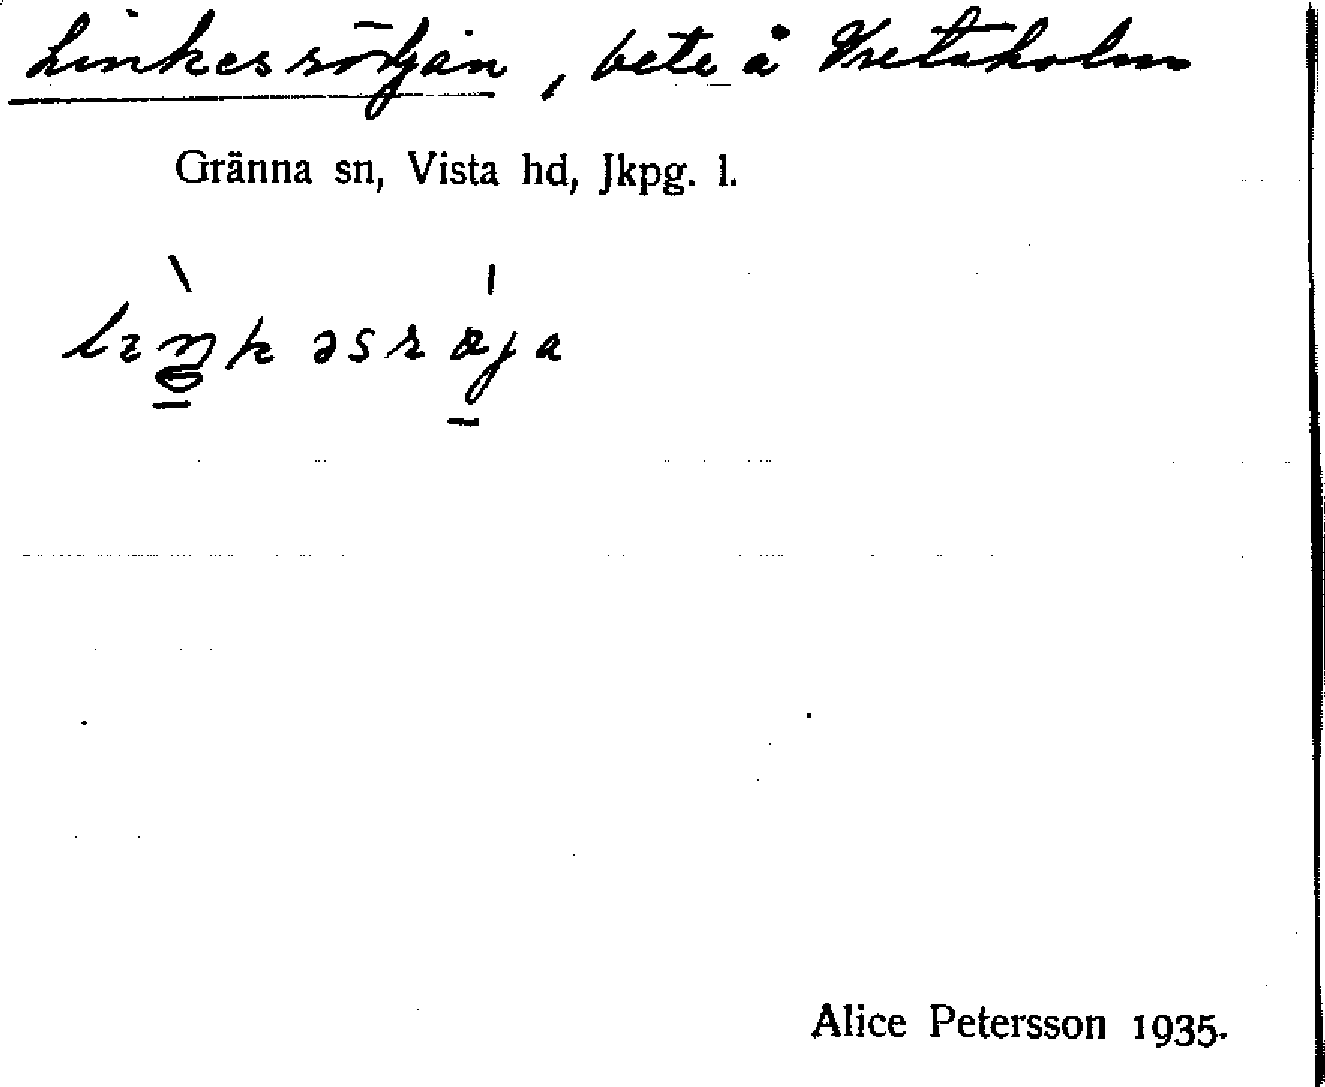 Linkesrödjan, bete å Vretaholm
Gränna sn, Vista hd, Jkpg. l.
Alice Petersson 1935.